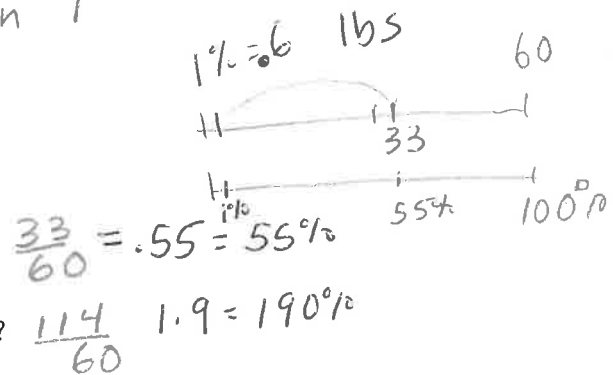 n 1
1% = .6 lbs
60
33
1% 55% 100%
33/60 = .55 = 55%
? 114/60 1.9 = 190%